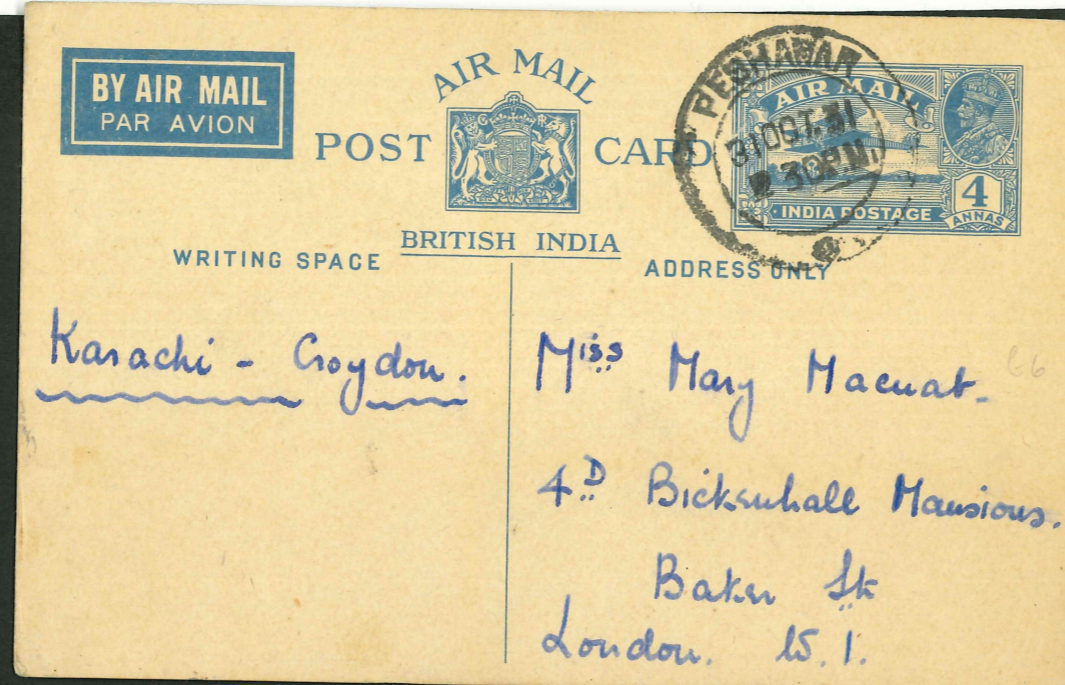 BY AIR MAIL
PAR AVION
AIR MAIL
POST CARD
BRITISH INDIA
PESHAWAR
31 OCT. 31
30 P.M.
AIR MAIL
INDIA POSTAGE
4
ANNAS
WRITING SPACE
ADDRESS ONLY
Karachi - Croydon.
Miss Mary Macnab.
4D Bickenhall Mansions.
Baker St
London. W. 1.
66